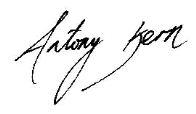 Antony Kern